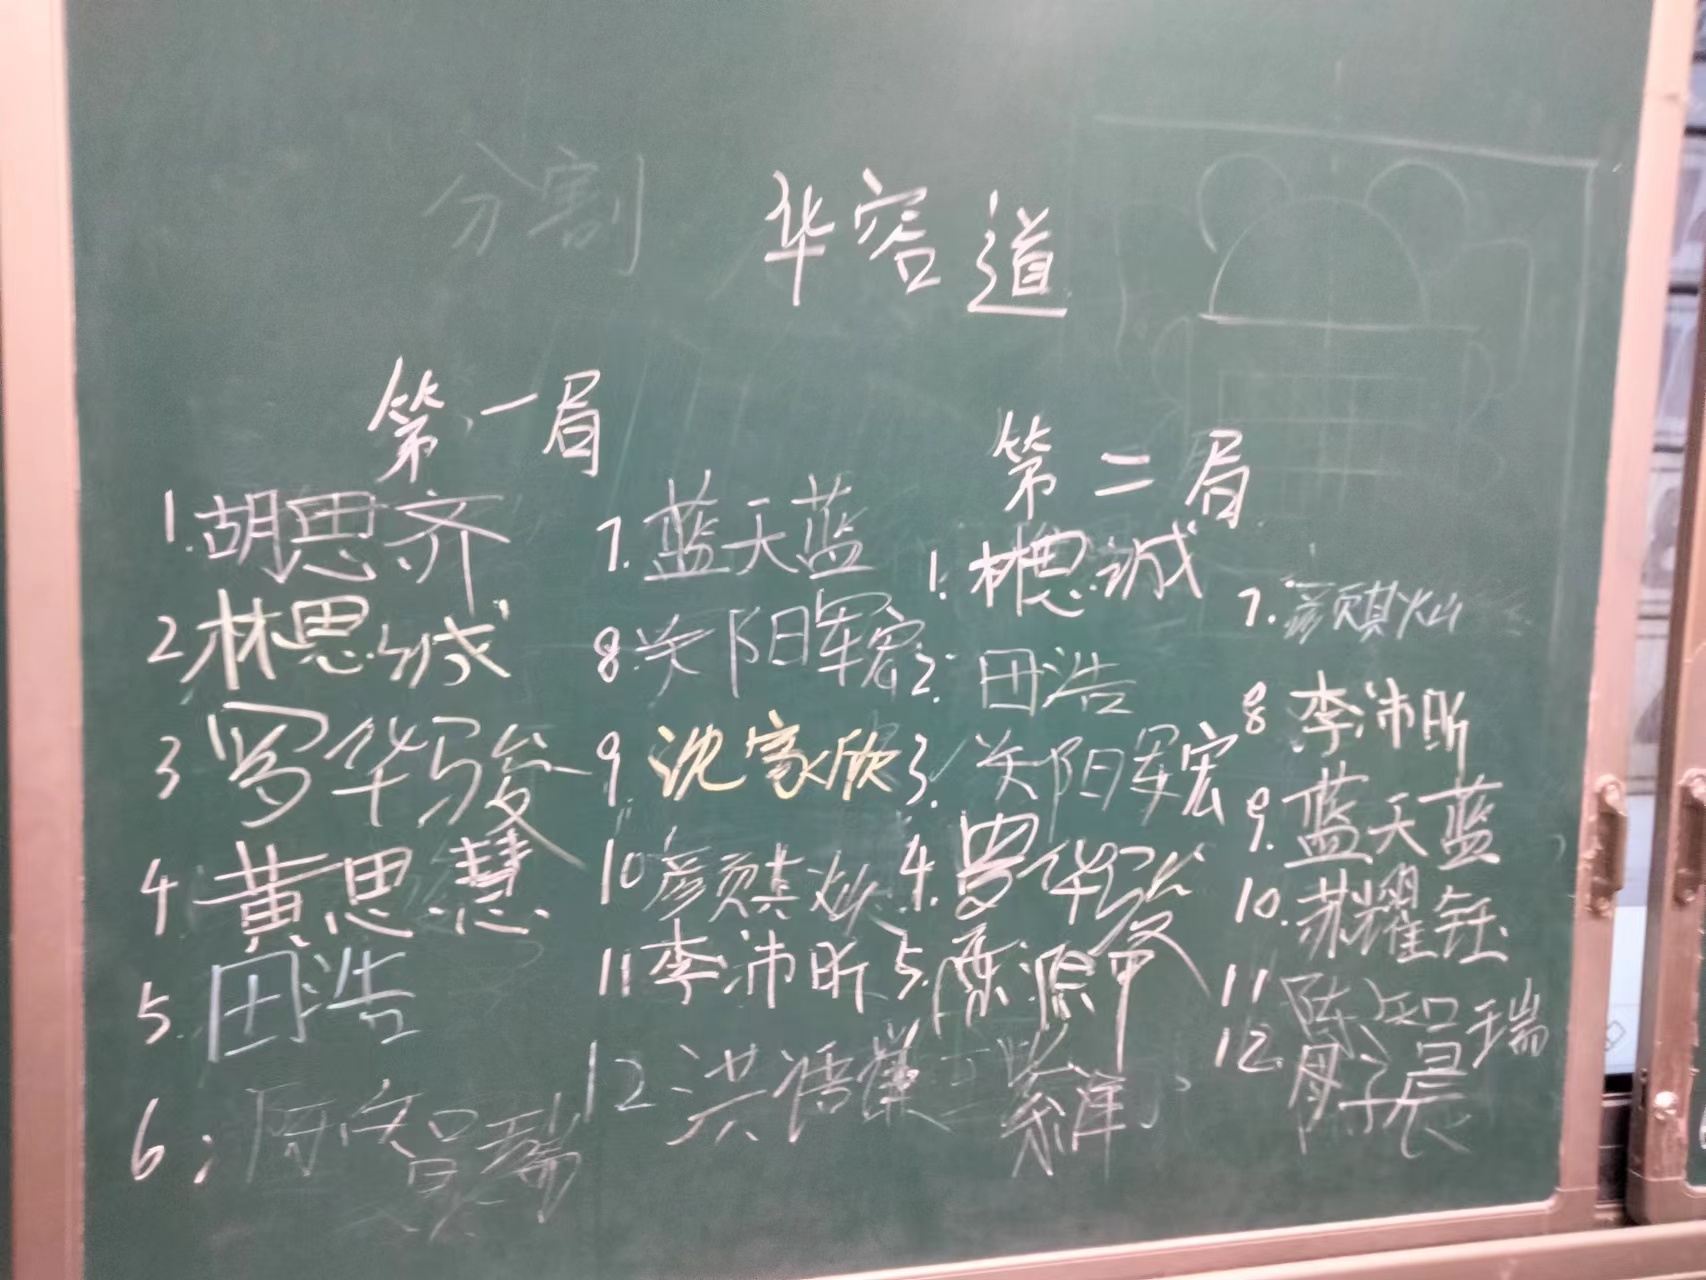 分割
华容道
第一局
1.胡思齐
2林思诚
3罗华骏
4黄思慧
5.田浩
6:陈智瑞
7.蓝天蓝
8关阳军宏
9.沈家欣
10彦颢灿
11李沛昕
12洪语
第二局
1.林思诚
2.田浩
3.关阳军宏
4.罗华骏
5.源
7.彦颢灿
8李沛昕
9.蓝天蓝
10.苏耀钰
11陈智瑞
12.子宸